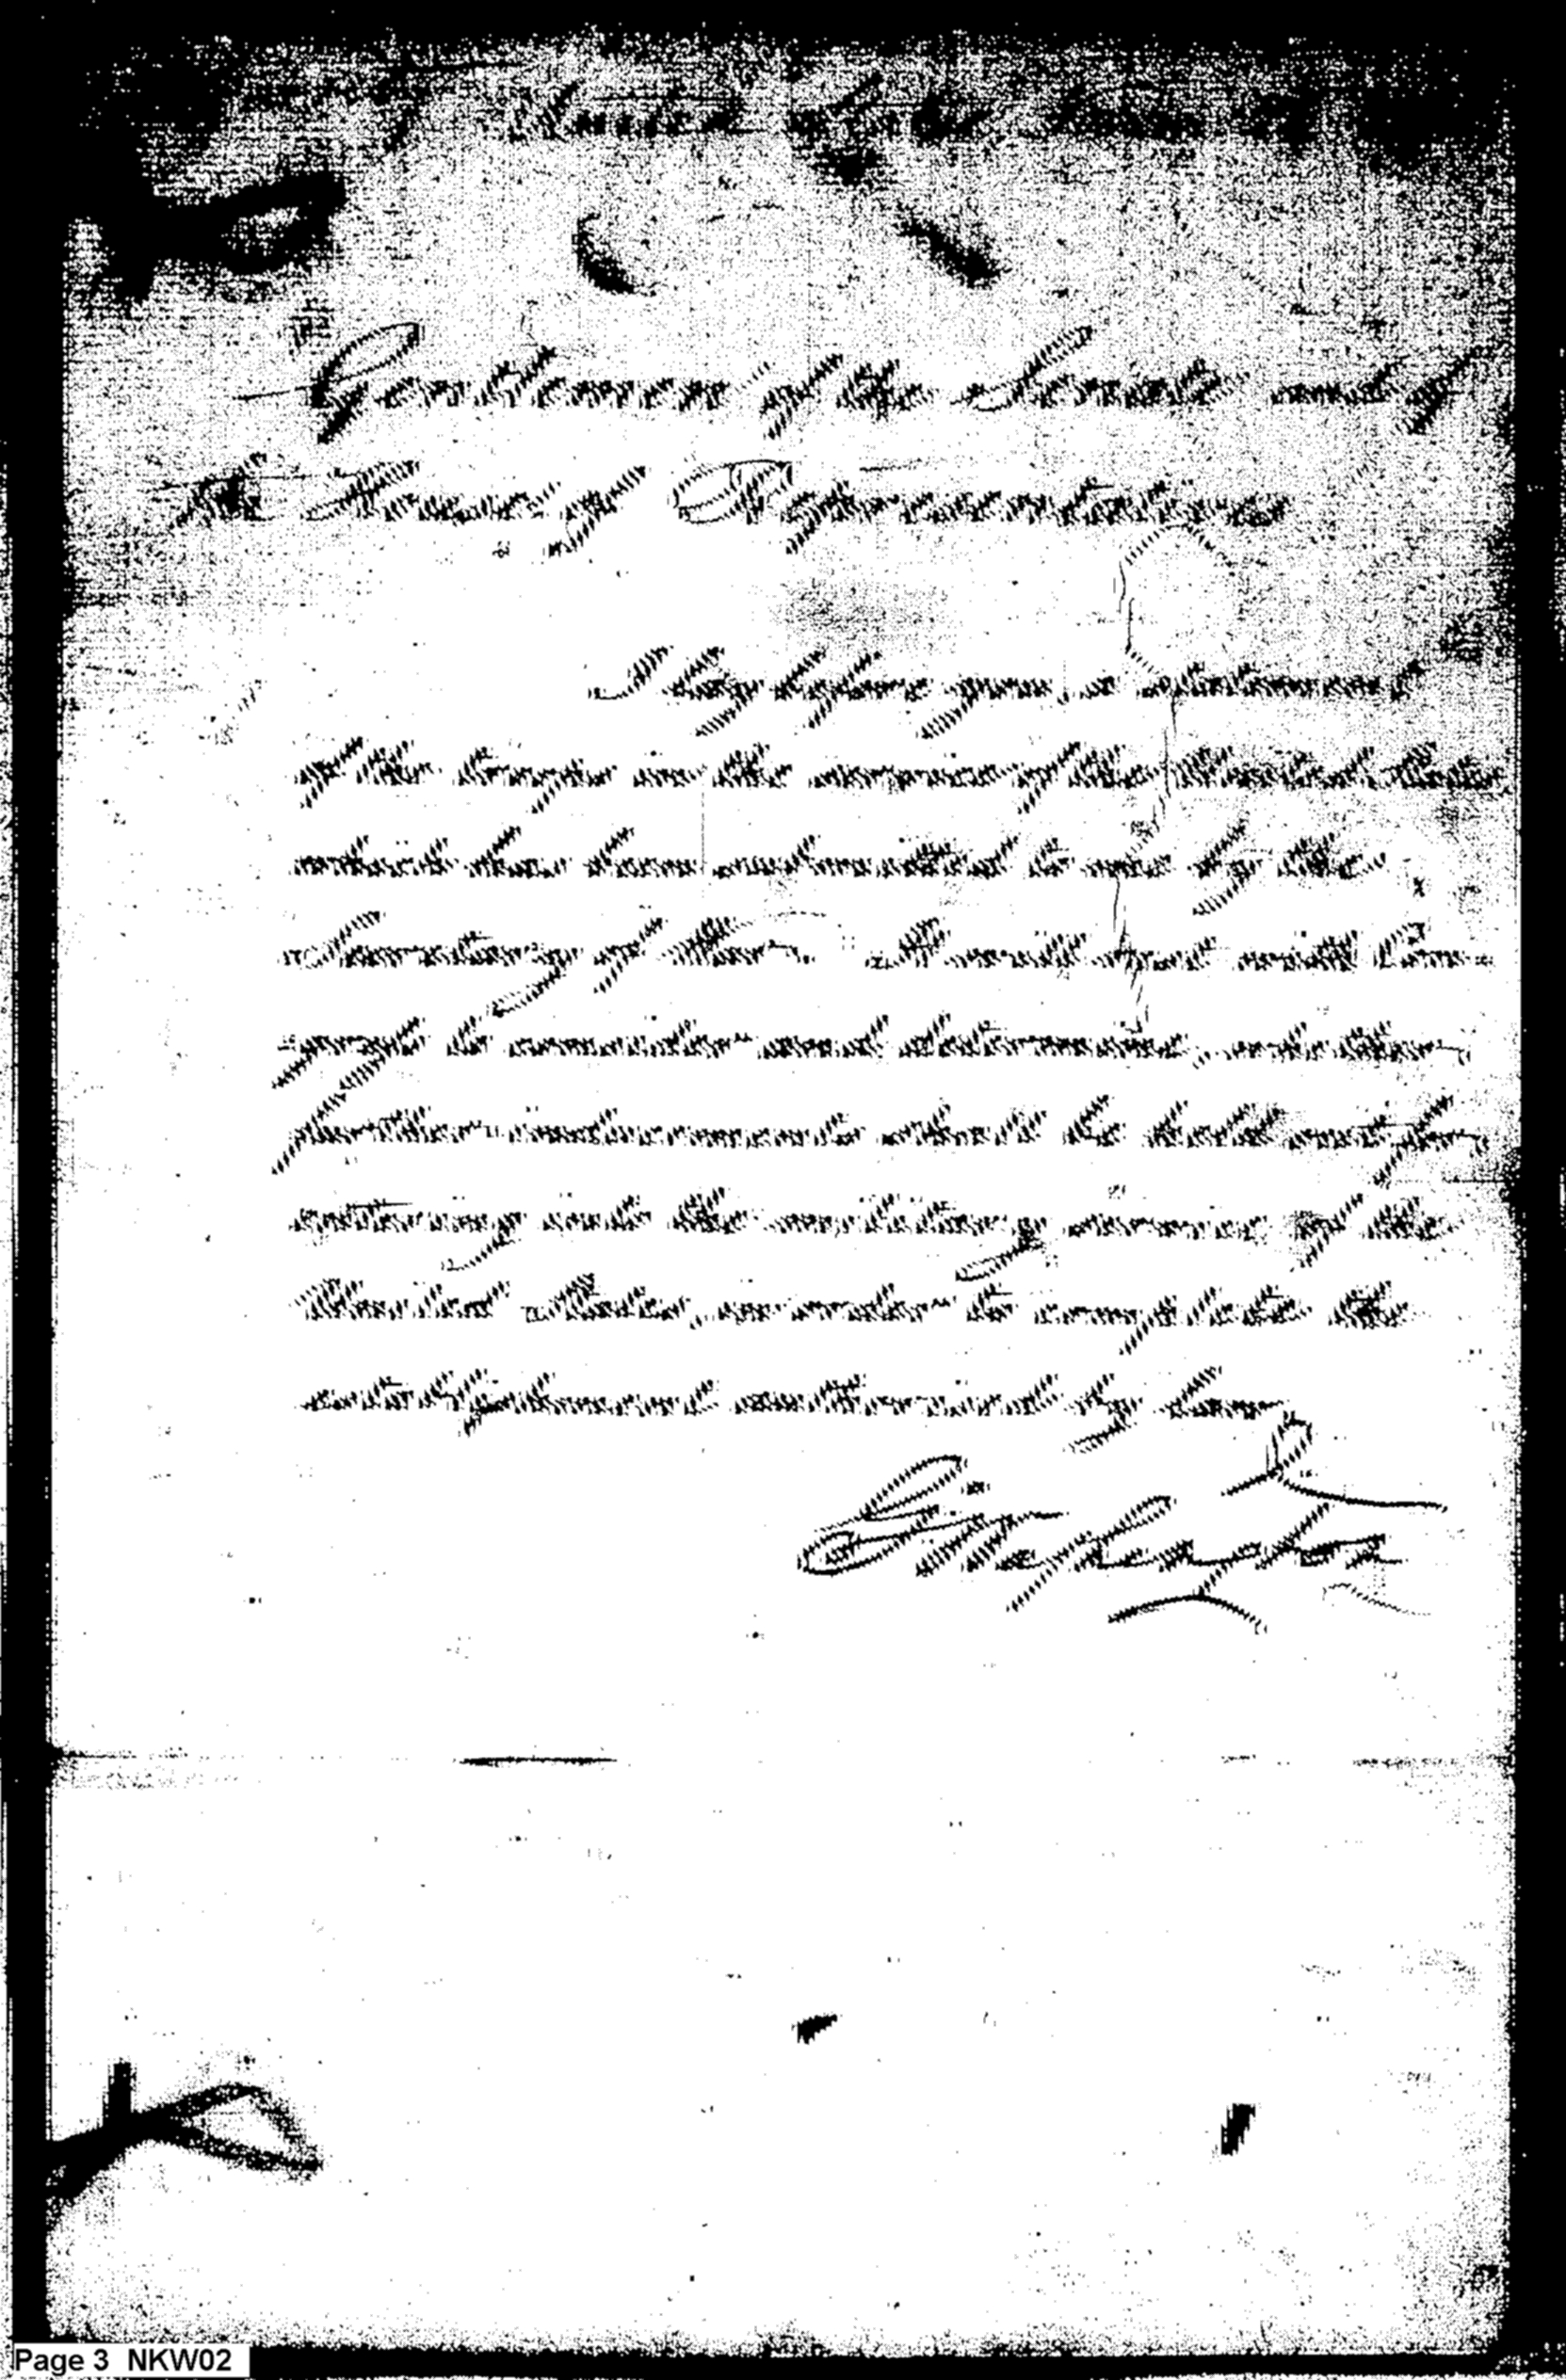 United States
Gentlemen of the Senate and of
the House of Representatives
I lay before you, a statement
of the troops in the service of the United States
which has been submitted to me by the
Secretary of War. It will rest with Con-
gress to consider and determine, whether
further inducements shall be held out for
entering into the military service of the
United States, in order to complete the
establishment authorized by law.
Go: Washington
Page 3 NKW02